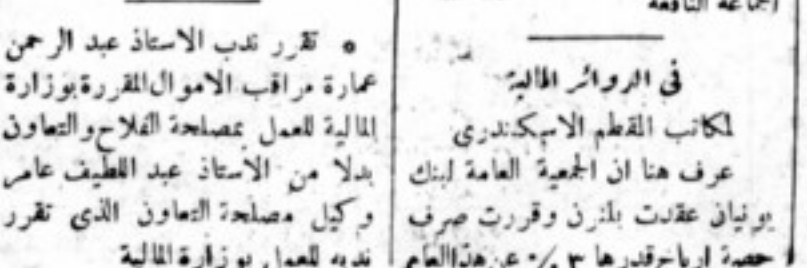 الجماعة النافعة
في الدوائر المالية
لمكاتب المقطم الاسكندرى
عرف هنا ان الجمعية العامة لبنك
يونيان عقدت بلندرن وقررت صرف
حصة ارباح قدرها ٣ ٪ عن هذا العام
* تقرر ندب الاستاذ عبد الرحمن
عمارة مراقب الاموال المقررة بوزارة
المالية للعمل بمصلحة الفلاح والتعاون
بدلا من الاستاذ عبد اللطيف عامر
وكيل مصلحة التعاون الذى تقرر
ندبه للعمل بوزارة المالية